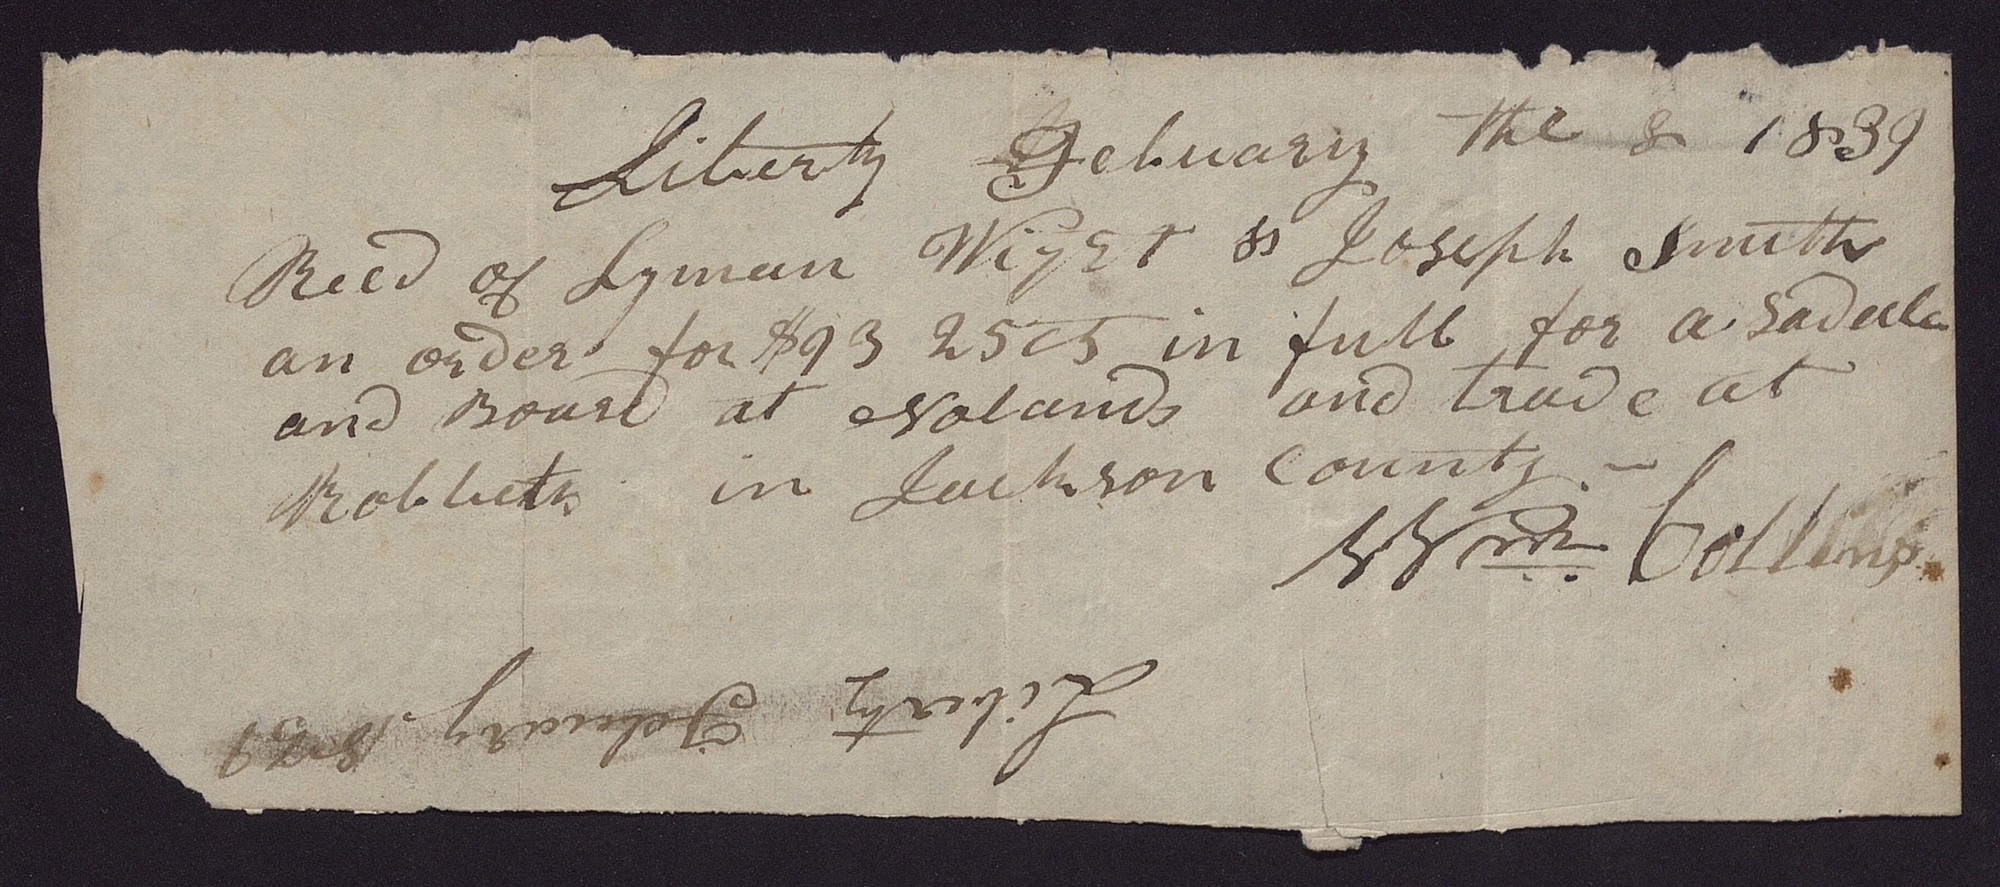 Liberty Febuary the 8 1839
Recd of Lyman Wight & Joseph Smith
an order for $93 25cts in full for a Sadule
and Board at Nolands and trade at
Robbuts in Jackson County —
Wm Collins
Liberty Febuary 1839